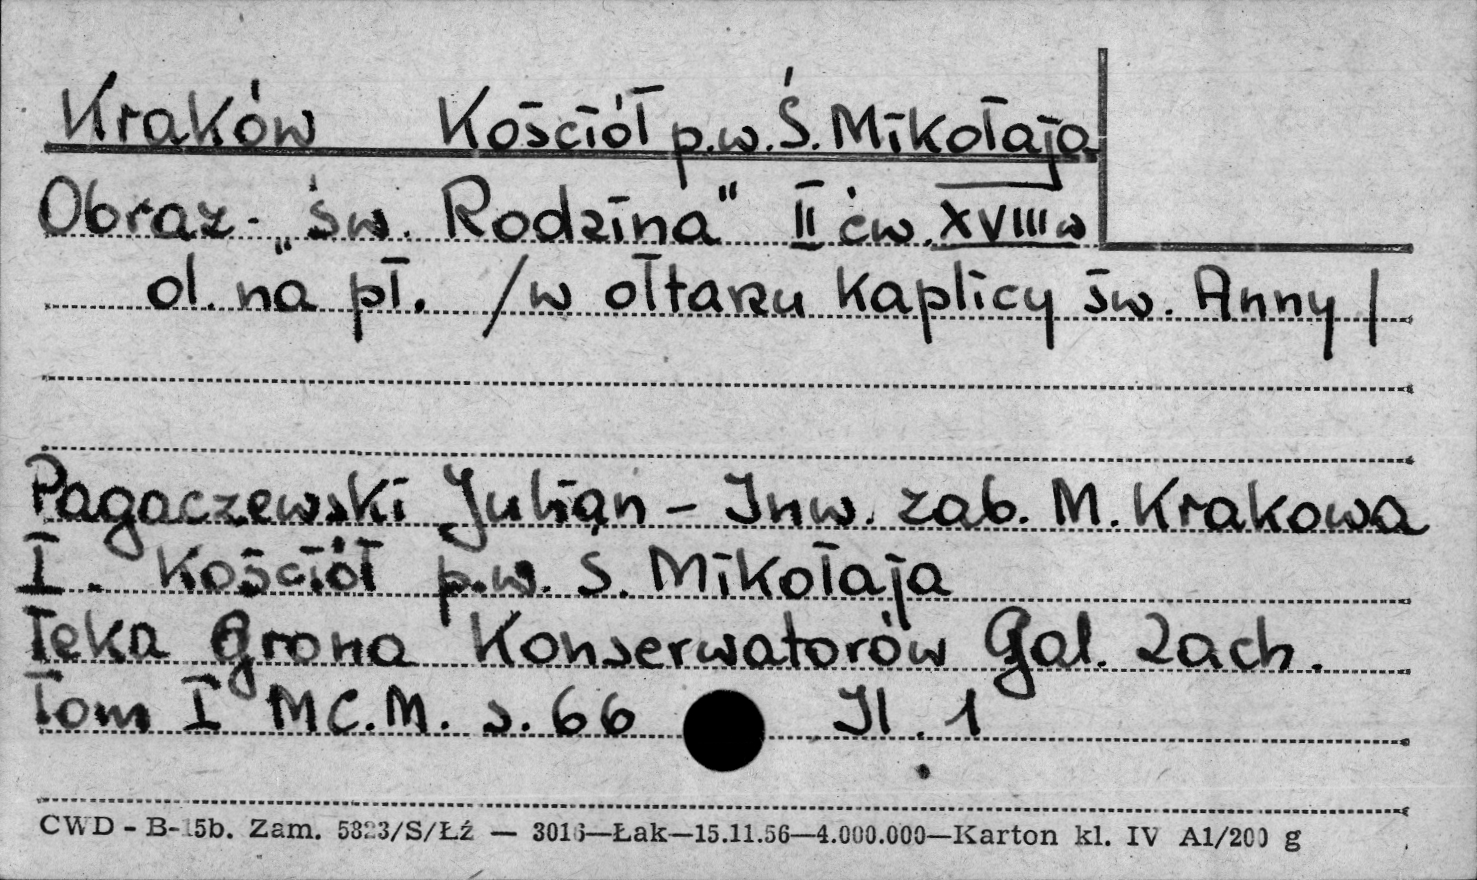 Kraków Kościół p.w. Ś. Mikołaja
Obraz - „św. Rodzina" II ćw. XVIII w
ol. na pł. /w ołtarzu kaplicy św. Anny/
Pagaczewski Julian - Inw. zab. M. Krakowa
I. Kościół p.w. Ś. Mikołaja
Teka Grona Konserwatorów Gal. Zach.
Tom I MC.M. s. 66 Il. 1
CWD - B-15b. Zam. 5823/S/Łź — 3016—Łak—15.11.56—4.000.000—Karton kl. IV A1/200 g